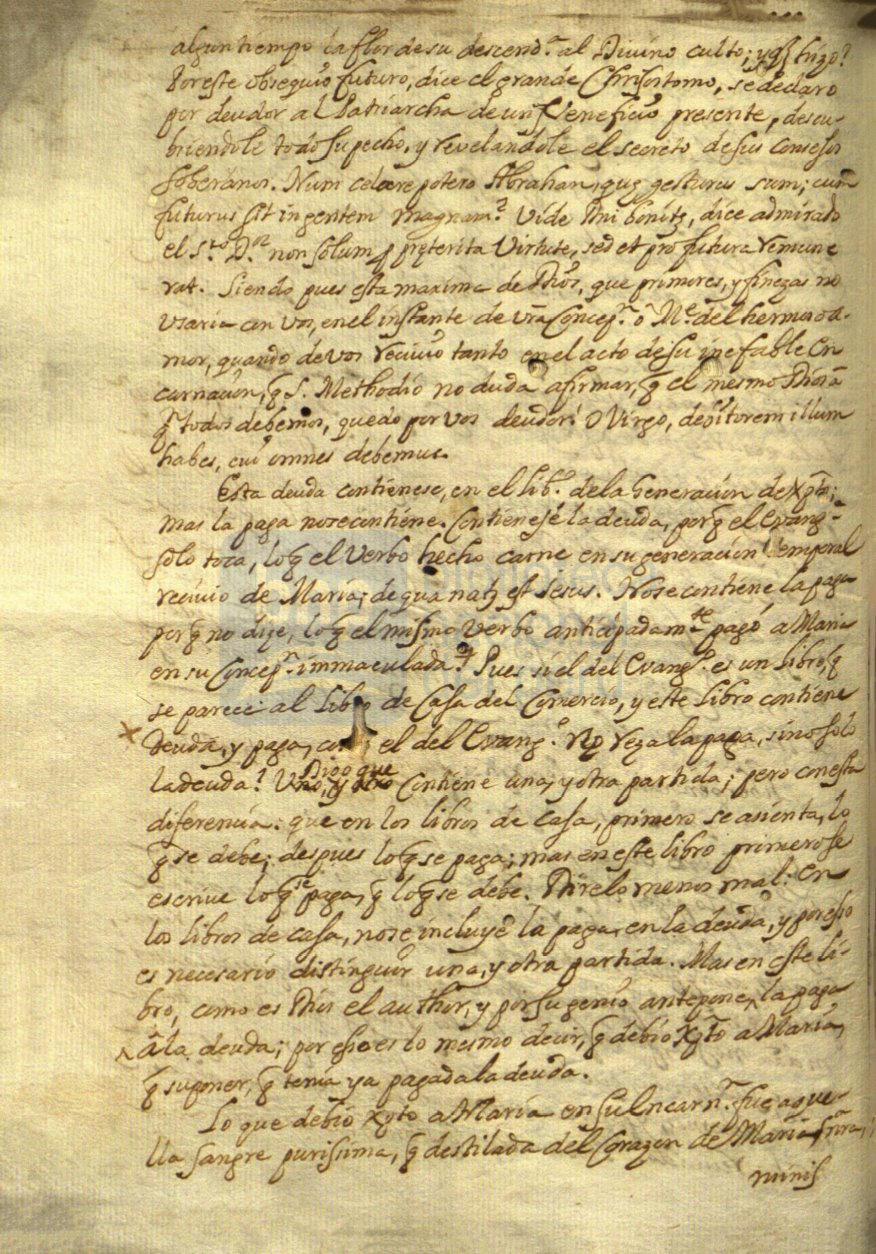 algun tiempo la flor de su descend.ª al Divino culto; y q̃ hizo?
Por este obsequio futuro, dice el grande Chrisostomo, se declaro
por deudor al Patriarcha de un Veneficio presente, descu-
briendole todo su pecho, y revelandole el secreto de sus consejos
soberanos. Num celare potero Abrahan, quę gesturus sum; cum
futurus sit in gentem magnam? Vide Dñi bonitę, dice admirado
el S.to D.or non solum p pręterita Virtute, sed et pro futura remune
rat. Siendo pues esta maxima de Dios, que primores, y finezas no
usaria con vos, en el instante de vr̃a Concep.n ô M.e del hermoso a-
mor, quando de vos recivio tanto en el acto de su inefable En
carnacion, q̃ S. Methodio no duda afirmar, q̃ el mesmo Dios â
q.n todos debemos, quedo por vos deudor! O Virgo, debitorem illum
habes, cui omnes debemus.
Esta deuda contienese, en el lib.º de la Generacion de Xpto;
mas la paga no se contiene. Contienese la deuda, porq̃ el Evang.º
solo toca, lo q̃ el Verbo hecho carne en su generacion temporal
recivio de Maria; de qua natꝰ est Jesus. No se contiene la paga
porq̃ no dije, lo q̃ el mismo Verbo anticipadam.te pagó a Maria
en su Concep.n immaculada. Pues si el del Evang.º es un libro, q̃
se parece al Libro de Casa del Comercio, y este libro contiene
deuda, y paga, como el del Evang.º no reza la paga, sino solo
la deuda? Digo que Uno, y otro contiene una, y otra partida; pero con esta
diferencia: que en los libros de casa, primero se asienta, lo
q̃ se debe; despues lo q̃ se paga; mas en este libro primero se
escrive lo q̃ se paga, q̃ lo q̃ se debe. Direlo menos mal: En
los libros de casa, no se incluye la paga, en la deuda, y por esso
es necesario distinguir una, y otra partida. Mas en este li-
bro, como es Dios el author, y por su genio antepone la paga
â la deuda; por esso es lo mesmo decir, q̃ debio Xpto a Maria,
q̃ suponer, q̃ tenia ya pagada la deuda.
Lo que debio Xpto a Maria en su Incarn.n fue aque-
lla sangre purissima, q̃ destilada del Corazon de Maria
minis